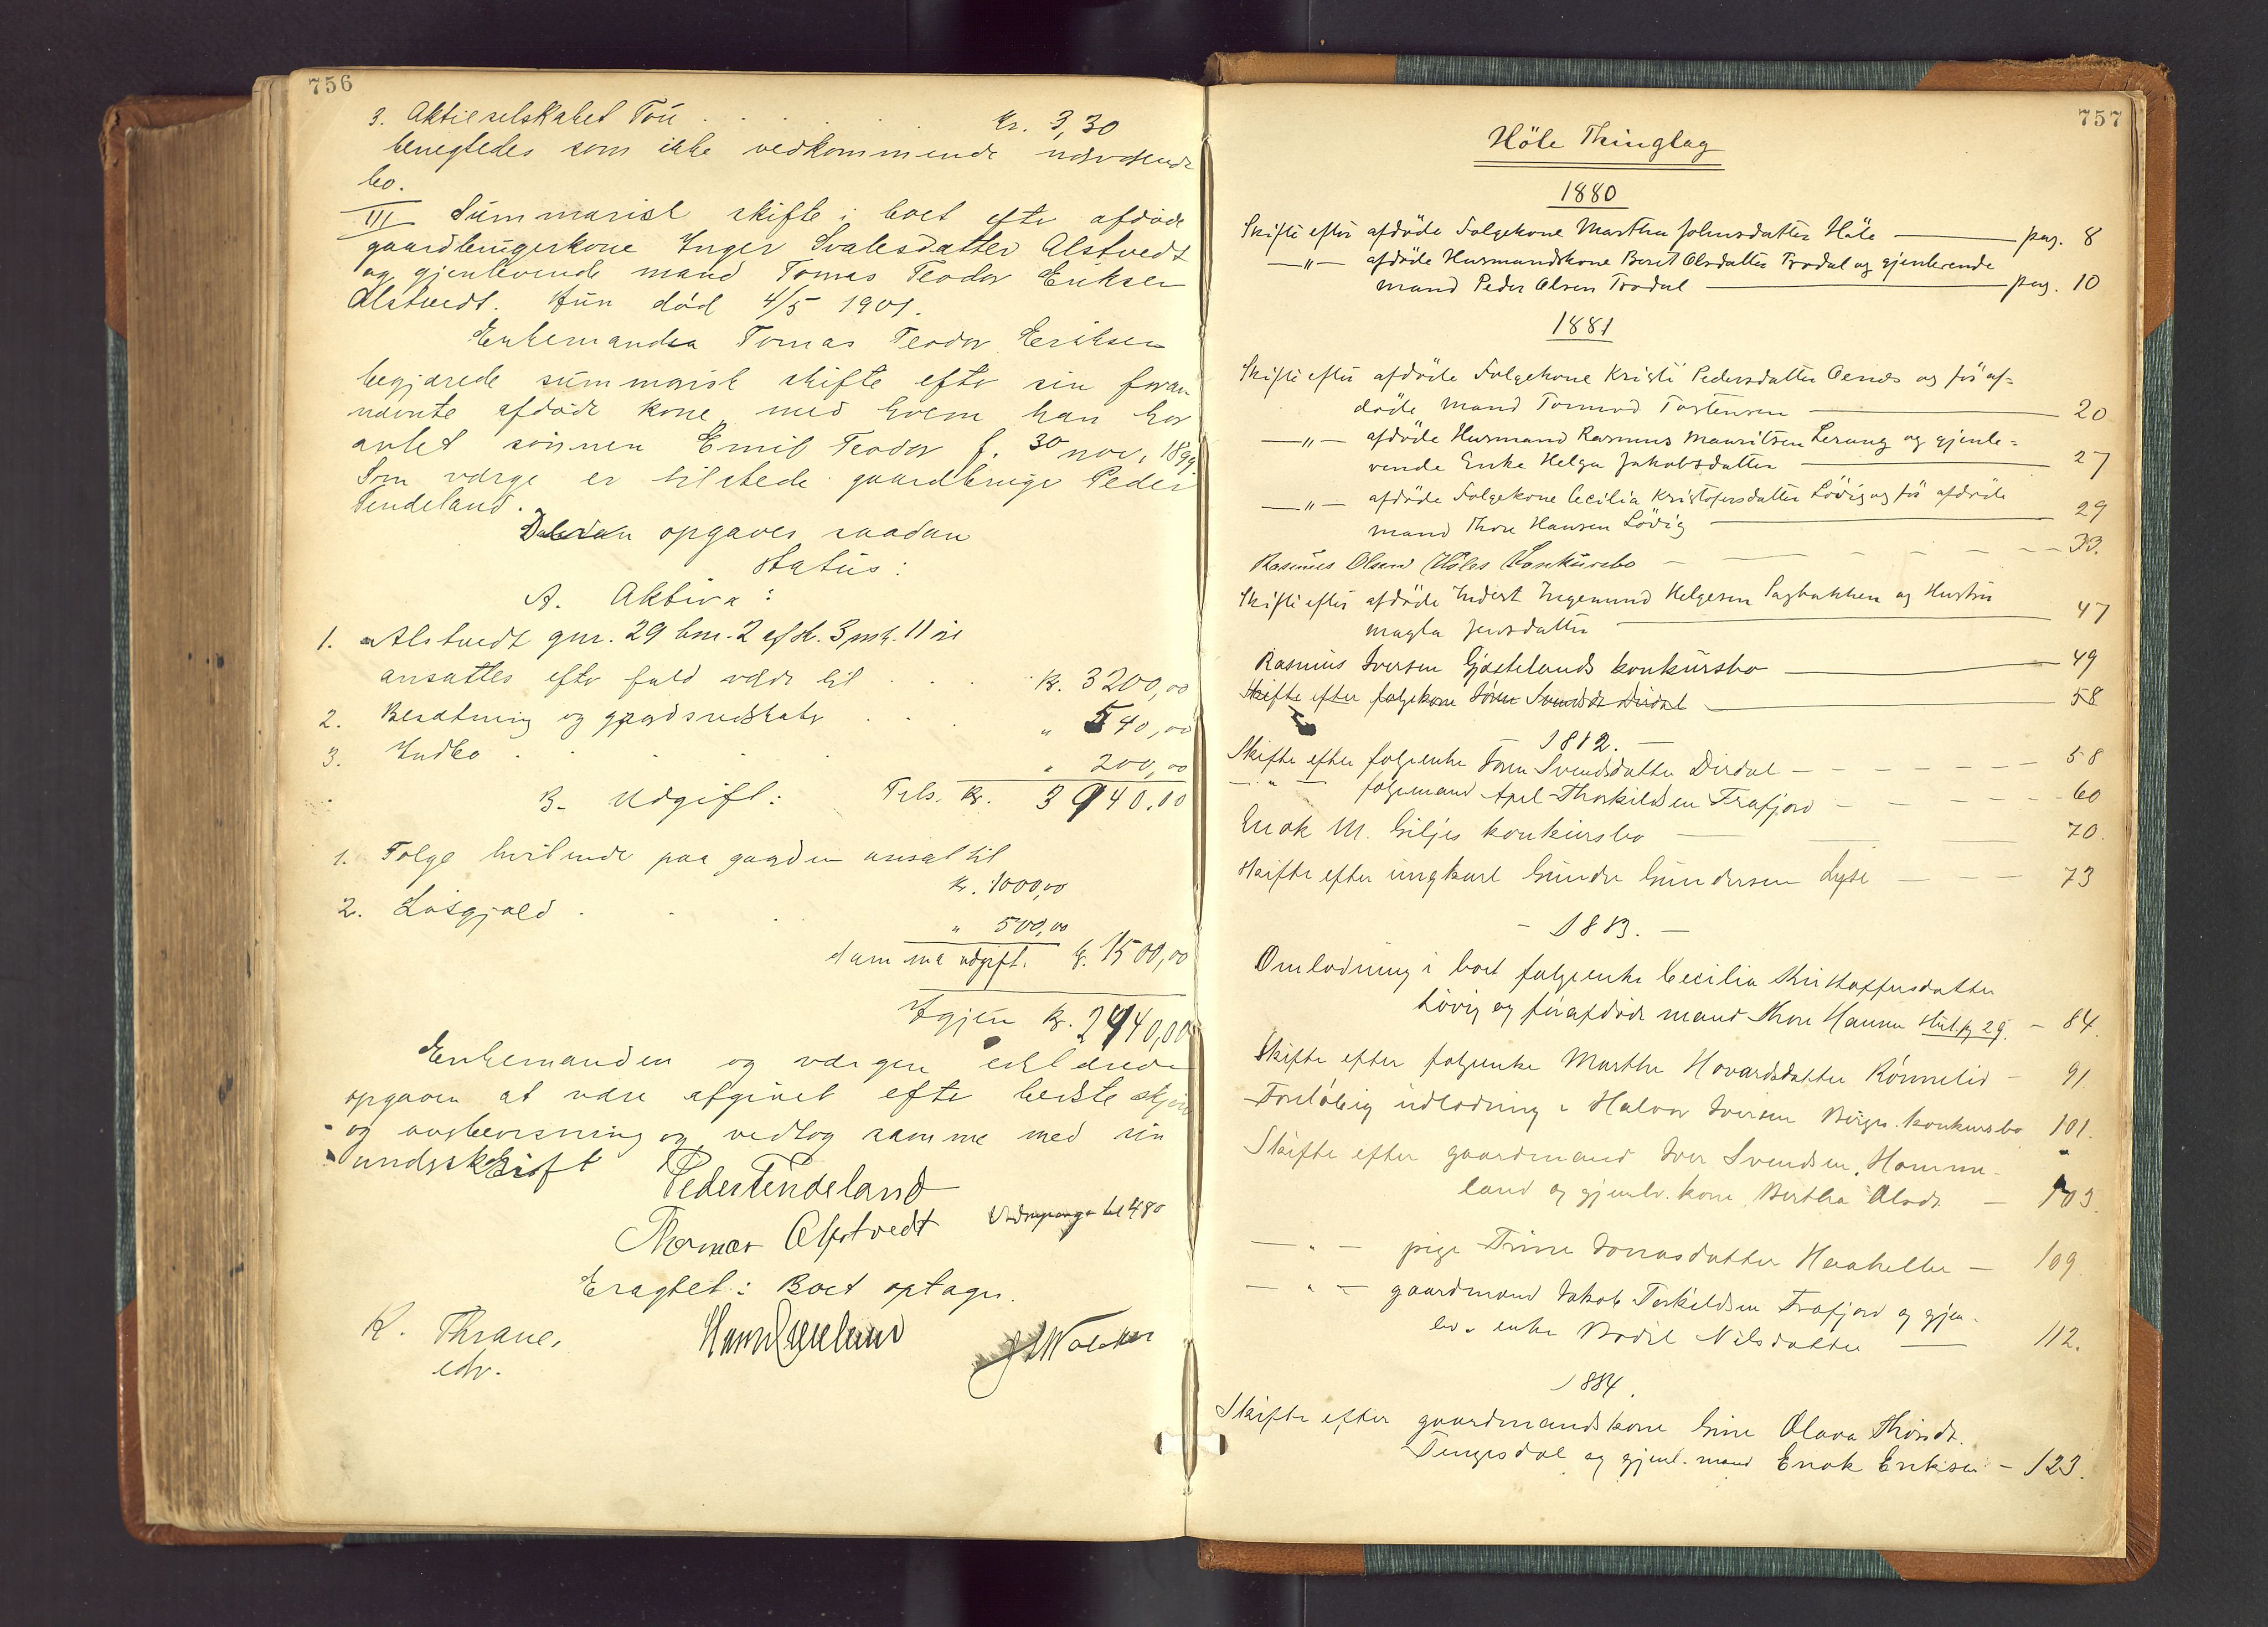 756
3. Aktieselskabet Tou . . . . . Kr. 3,30
benegtedes som ikke vedkommende nærværende
bo.
III Summarisk skifte i boet efter afdøde
gaardbrugerkone Inger Svalesdatter Alstvedt
og gjenlevende mand Tomas Teodor Eriksen
Alstvedt. Hun död 4/5 1901.
Enkemanden Tomas Teodor Eriksen
begjærede summarisk skifte efter sin foran
nævnte afdøde kone, med hvem han har
avlet sönnen Emil Teodor f. 30 nov. 1899.
Som værge er tilstede gaardbruger Peder
Tendeland.
opgaves saadan
Status:
A. Aktiva:
1. Alstvedt gnr. 29 bnr. 2 af sk. 3 mk. 11 øre
ansattes efter fuld værdi til . . . Kr. 3200,00
2. Besætning og gaardsredskaber . . . " 540,00
3. Indbo . . . . " 200,00
B. Udgift: Tils. Kr. 3940.00
1. Folge hvilende paa gaarden ansat til
Kr. 1000,00
2. Løsgjæld . . . " 500,00
Summa udgift. Kr. 1500,00
Igjen Kr. 2440,00
Enkemanden og værgen erklærede
opgaven at være afgivet efter bedste skjön
og overbevisning og vedtog samme med sin
underskrift
Peder Tendeland
Thomas Alstvedt
Eragtet: Boet optages.
K. Thrane,
edv.
757
Höle Thinglag
1880
Skifte efter afdöde Folgekone Martha Johnsdatter Höle — pag. 8
— " — afdöde Husmandskone Berit Olsdatter Frodal og gjenlevende
mand Peder Olsen Frodal — pag. 10
1881
Skifte efter afdöde Folgekone Kristi Pedersdatter Oenes og før af=
döde Mand Tormod Tostensen — 20
— " — afdöde Husmand Rasmus Mauritsen Lerang og gjenle=
vende Enke Helga Jakobsdatter — 27
— " — afdöde Folgekone Cecilia Kristofersdatter Lövig og før afdöde
mand Thore Hansen Lövig — 29
Rasmus Olsen Höles Konkursbo — 33.
Skifte efter afdöde Inderst Ingemund Helgesen Sagbakken og Hustru
Magla Jensdatter — 47
Rasmus Iversen Gjestelands konkursbo — 49
Skifte efter folgekone Svendsdr Dirdal — 58
1882. —
Skifte efter folgeenke Svendsdatter Dirdal — 58
— " — folgemand Axel Thorkildsen Frafjord — 60
Enok M. Giljes konkursbo — 70.
Skifte efter ungkarl Gunder Gundersen Lyse — 73
— 1883. —
Omlodning i boet folgeenke Cecilia Kristoffersdatter
Lövig og førafdöde mand Thore Hansen pg 29. — 84.
Skifte efter folgeenke Martha Hovardsdatter Rönnelid — 91.
Foreløbig udlodning i Halvor Iversen konkursbo 101.
Skifte efter gaardmand Iver Svendsen Homme-
land og gjenlev. kone Bertha Olsdr — 103.
— " — pige Trine Jonasdatter Haaheller — 109.
— " — gaardmand Jakob Terkildsen Frafjord og gjen-
lev. enke Bodil Nilsdatter — 112.
1884.
Skifte efter gaardmandskone Gine Olava Thorsdr.
Tengesdal og gjenl. mand Enok Eriksen — 123.